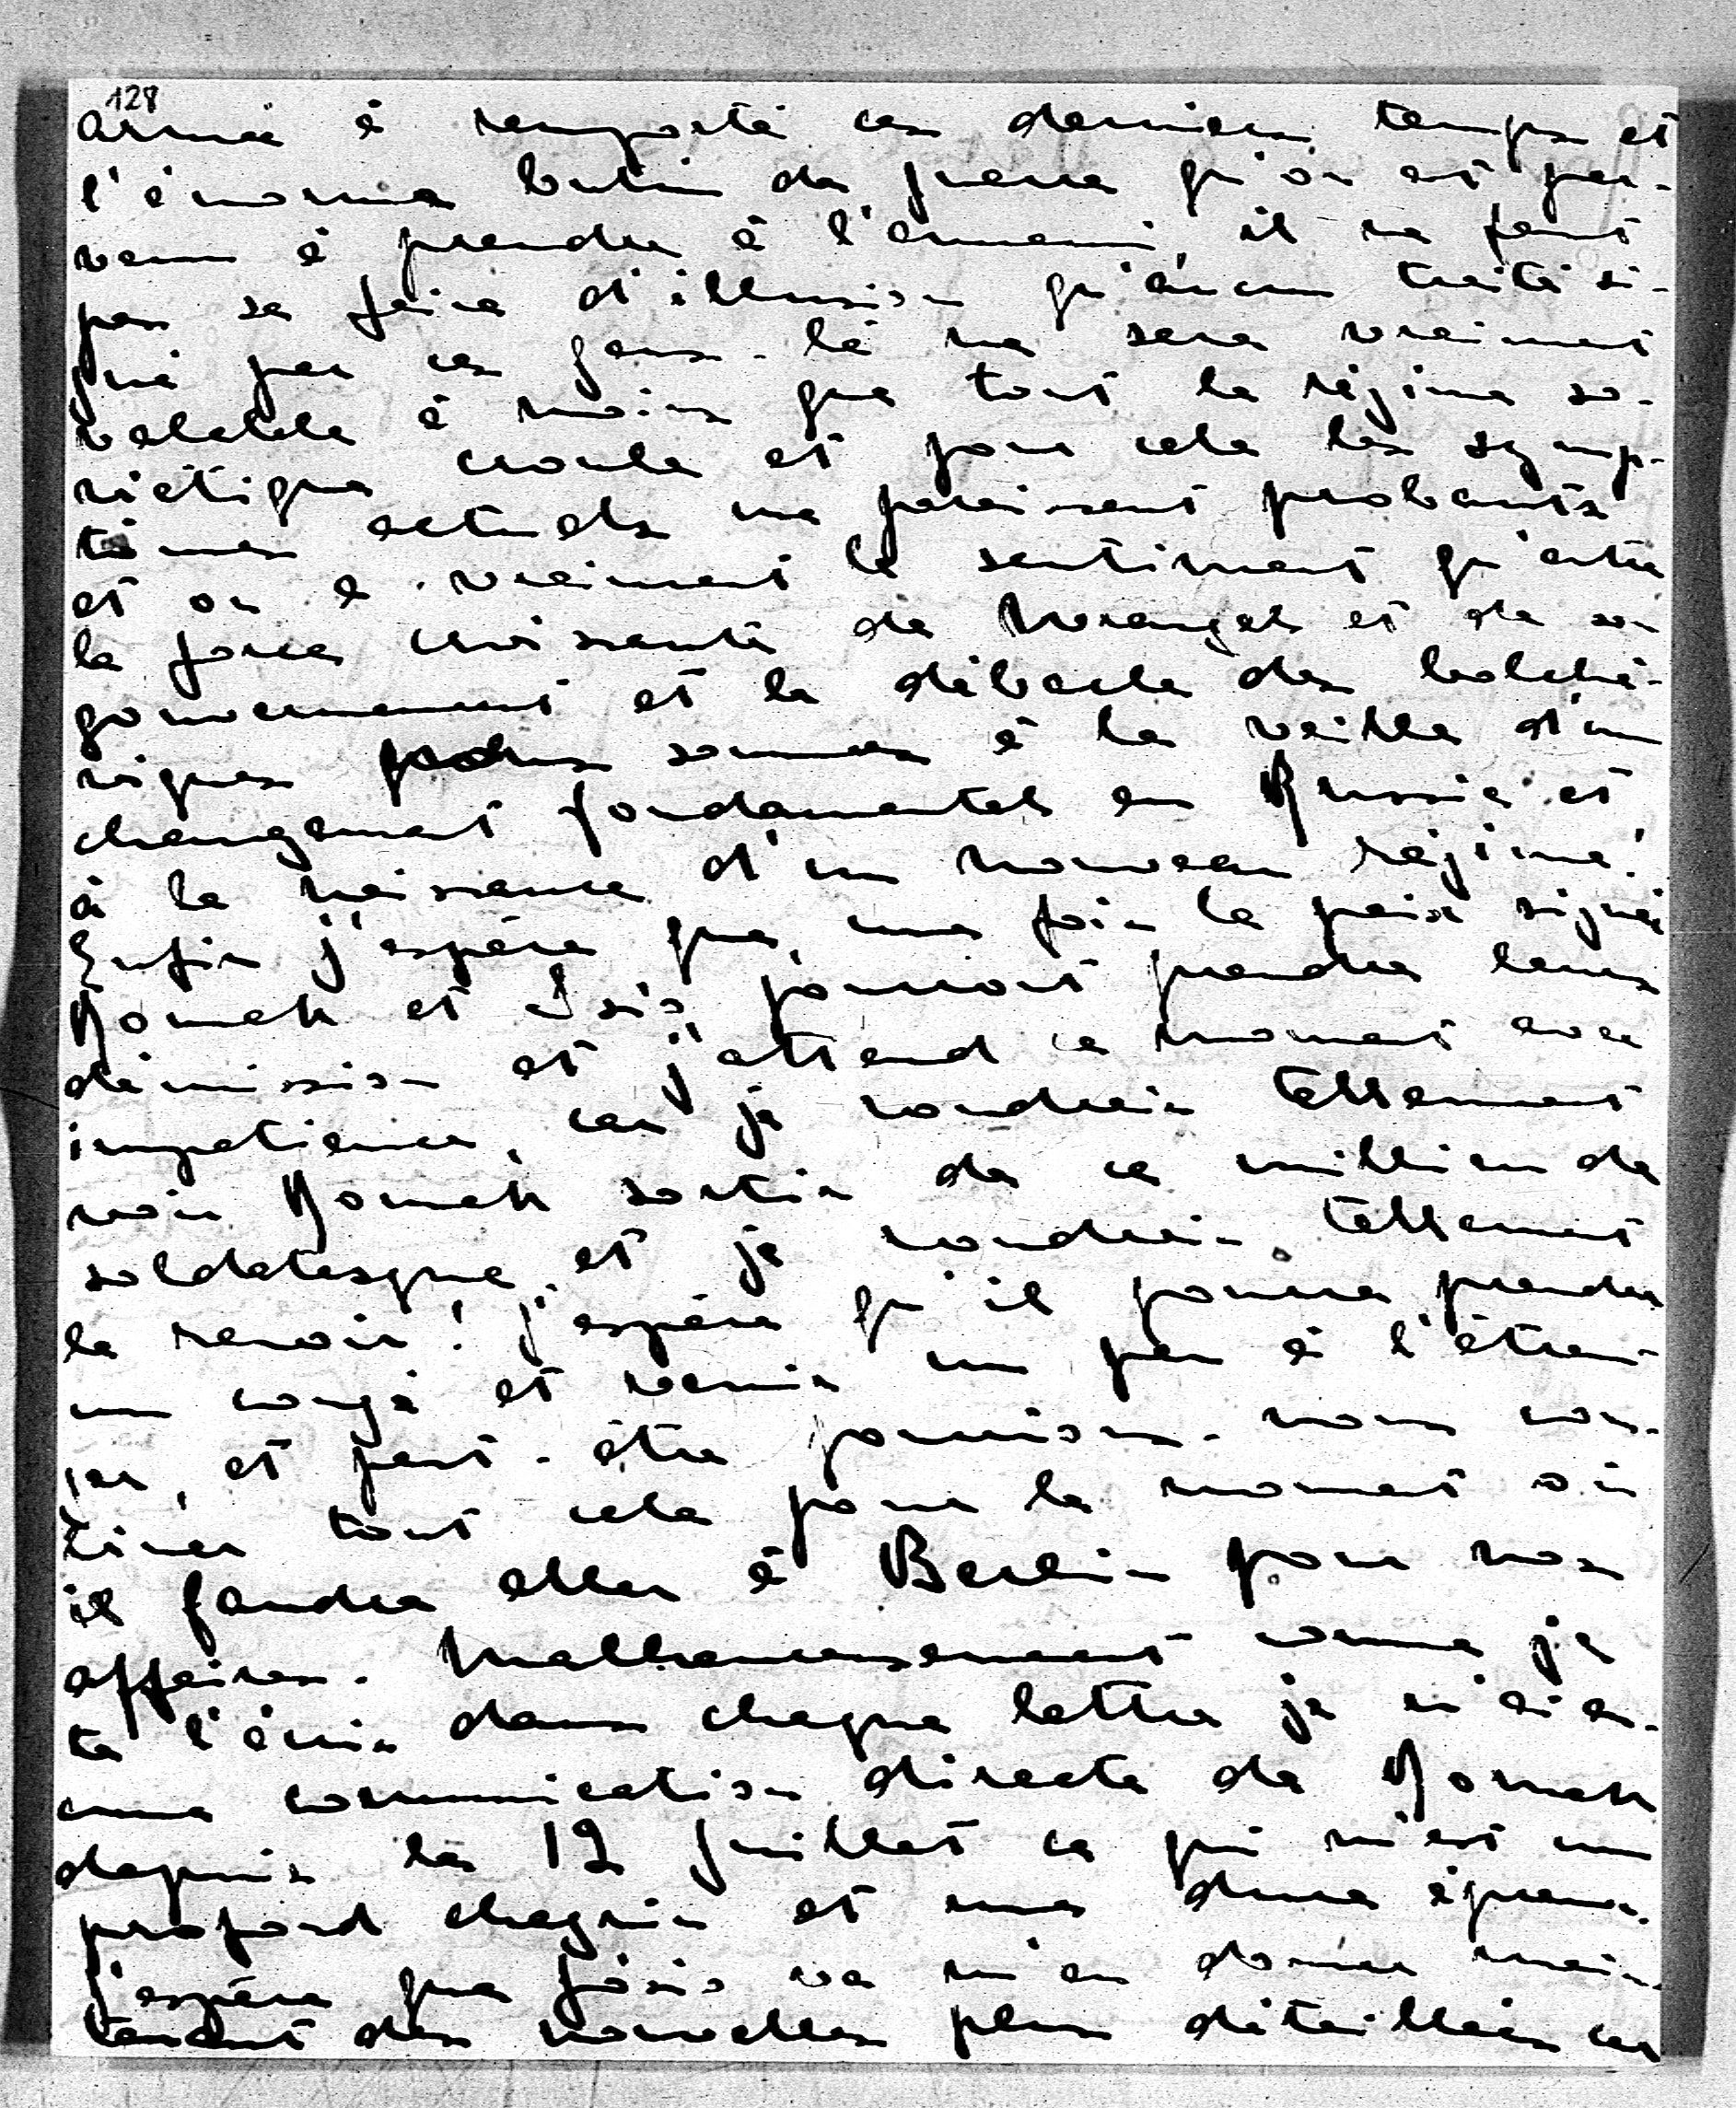 128
armée à remporté ces derniers temps et
l'énorme butin de guerre qu'on est par-
venu à prendre à l'ennemi il ne faut
pas se faire d'illusion qu'aucun traité si-
gné par ces gens-là ne sera vraiment
valable à moins que tout le régime so-
viétique croule et pour cela les symp-
tômes actuels me paraissent probants
et on a vraiment le sentiment qu'entre
la force croissante de Wrangel et de son
gouvernement et la débacle des bolché-
viques nous sommes à la veille d'un
changement fondamental en Russie et
à la naissance d'un nouveau régime!
Enfin j'espère que, une fois la paix signée
Romek et Isio pourront prendre leurs
démission et j'attend ce moment avec
impatience, car je voudrais tellement
voir Romek sortir de ce millieu de
soldatesque et je voudrais tellement
le revoir! j'espère qu'il pourra prendre
un congé et venir un peu à l'étran-
ger, et peut-être pourrions-nous com-
biner tout cela pour le moment où
il faudra aller à Berlin pour nos
affaires. Malheureusement comme je
te l'écris dans chaque lettre je n'ai au-
cune communication directe de Romek
depuis le 12 Juillet ce qui m'est un
profond chagrin et une dure épreuve.
J'espère que Józio va m'en donner main-
tenant des nouvelles plus détaillées car